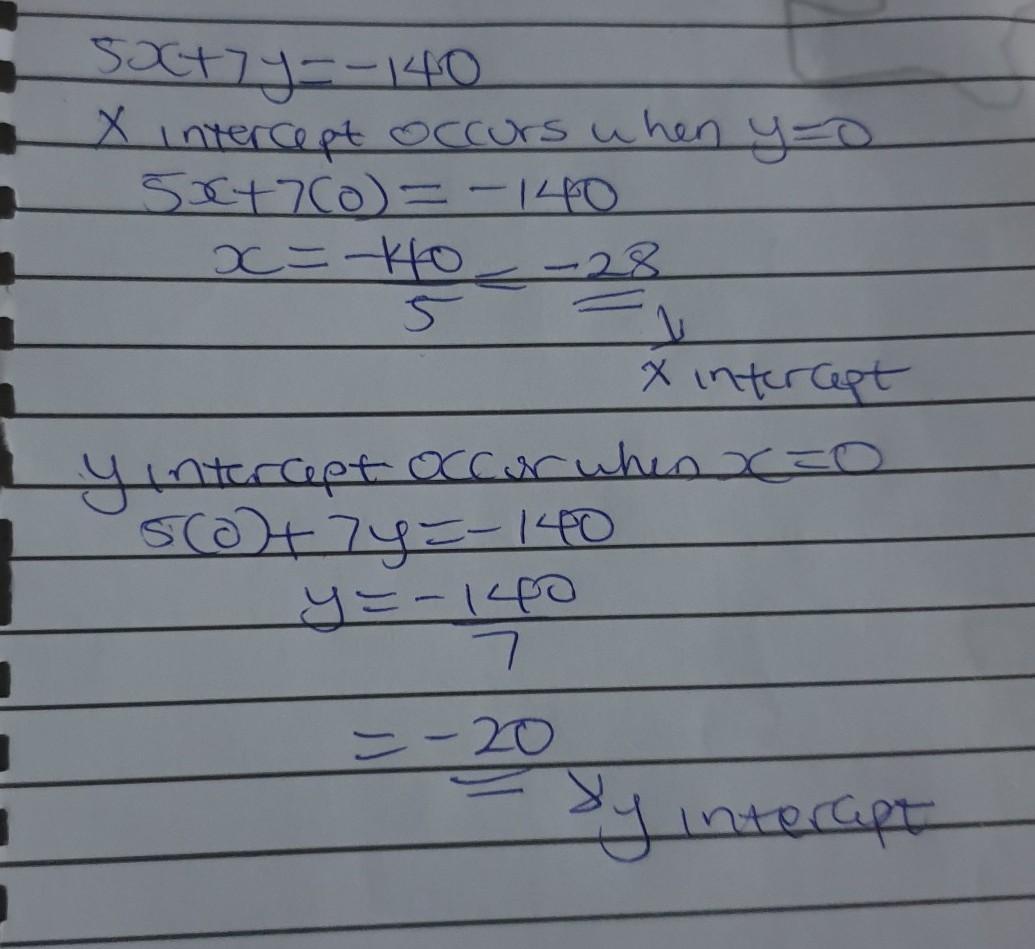 5x+7y=-140
X intercept occurs when y=0
5x+7(0)=-140
x=-140/5=-28
x intercept
y intercept occur when x=0
5(0)+7y=-140
y=-140/7
=-20
y intercept